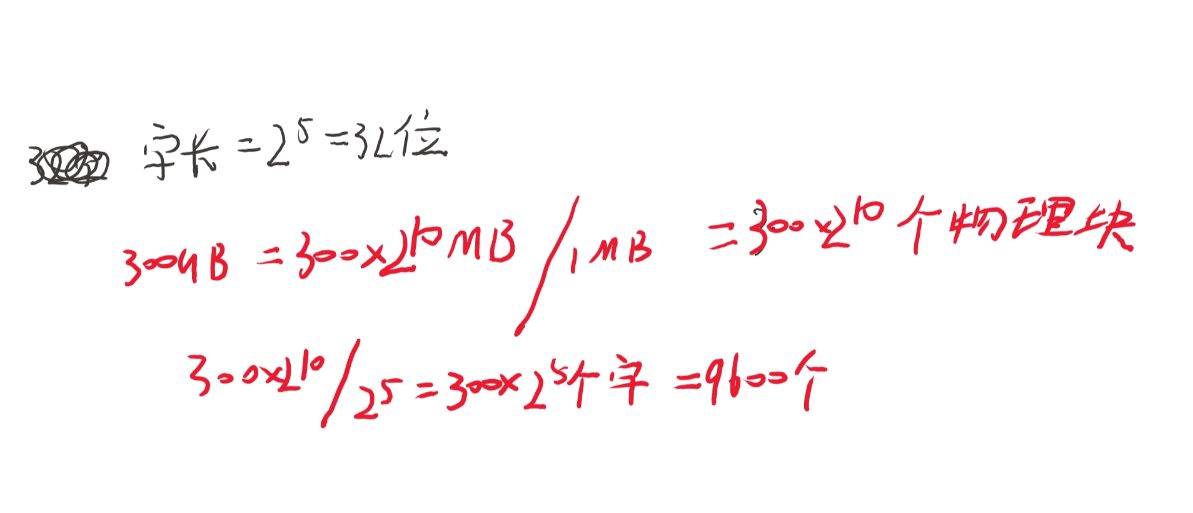 字长=2⁵=32位
300GB=300×2¹⁰MB/1MB =300×2¹⁰个物理块
300×2¹⁰/2⁵=300×2⁵个字=9600个